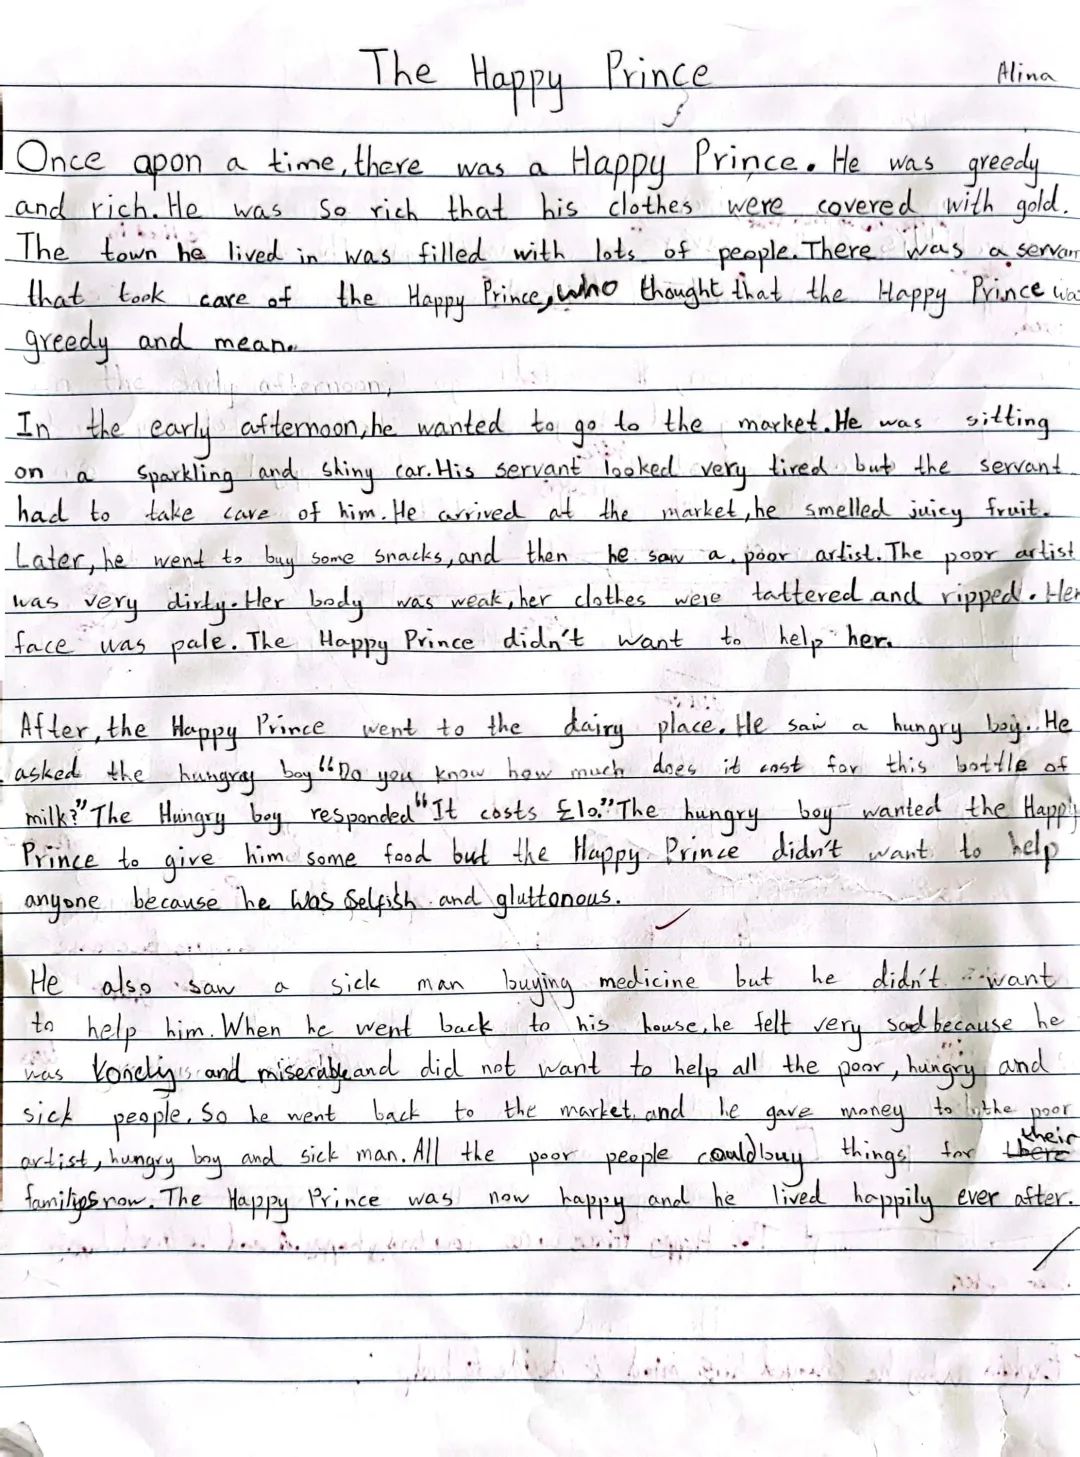 The Happy Prince
Alina
Once apon a time, there was a Happy Prince. He was greedy
and rich. He was so rich that his clothes were covered with gold.
The town he lived in was filled with lots of people. There was a servan
that took care of the Happy Prince, who thought that the Happy Prince wa
greedy and mean.
In the early afternoon,
In the early afternoon, he wanted to go to the market. He was sitting
on a sparkling and shiny car. His servant looked very tired but the servant
had to take care of him. He arrived at the market, he smelled juicy fruit.
Later, he went to buy some snacks, and then he saw a poor artist. The poor artist
was very dirty. Her body was weak, her clothes were tattered and ripped. Her
face was pale. The Happy Prince didn't want to help her.
After, the Happy Prince went to the dairy place. He saw a hungry boy. He
asked the hungray boy "Do you know how much does it cost for this bottle of
milk?" The Hungry boy responded "It costs £10." The hungry boy wanted the Happy
Prince to give him some food but the Happy Prince didn't want to help
anyone because he was selfish and gluttonous.
He also saw a sick man buying medicine but he didn't want
to help him. When he went back to his house, he felt very sad because he
was lonely and miserable and did not want to help all the poor, hungry and
sick people. So he went back to the market and he gave money to the poor
artist, hungry boy and sick man. All the poor people could buy things for there their
families now. The Happy Prince was now happy and he lived happily ever after.